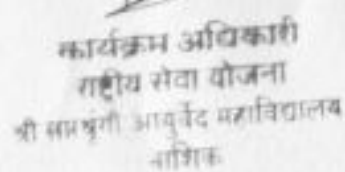 कार्यक्रम अधिकारी
राष्ट्रीय सेवा योजना
श्री सप्तश्रृंगी आयुर्वेद महाविद्यालय
नाशिक